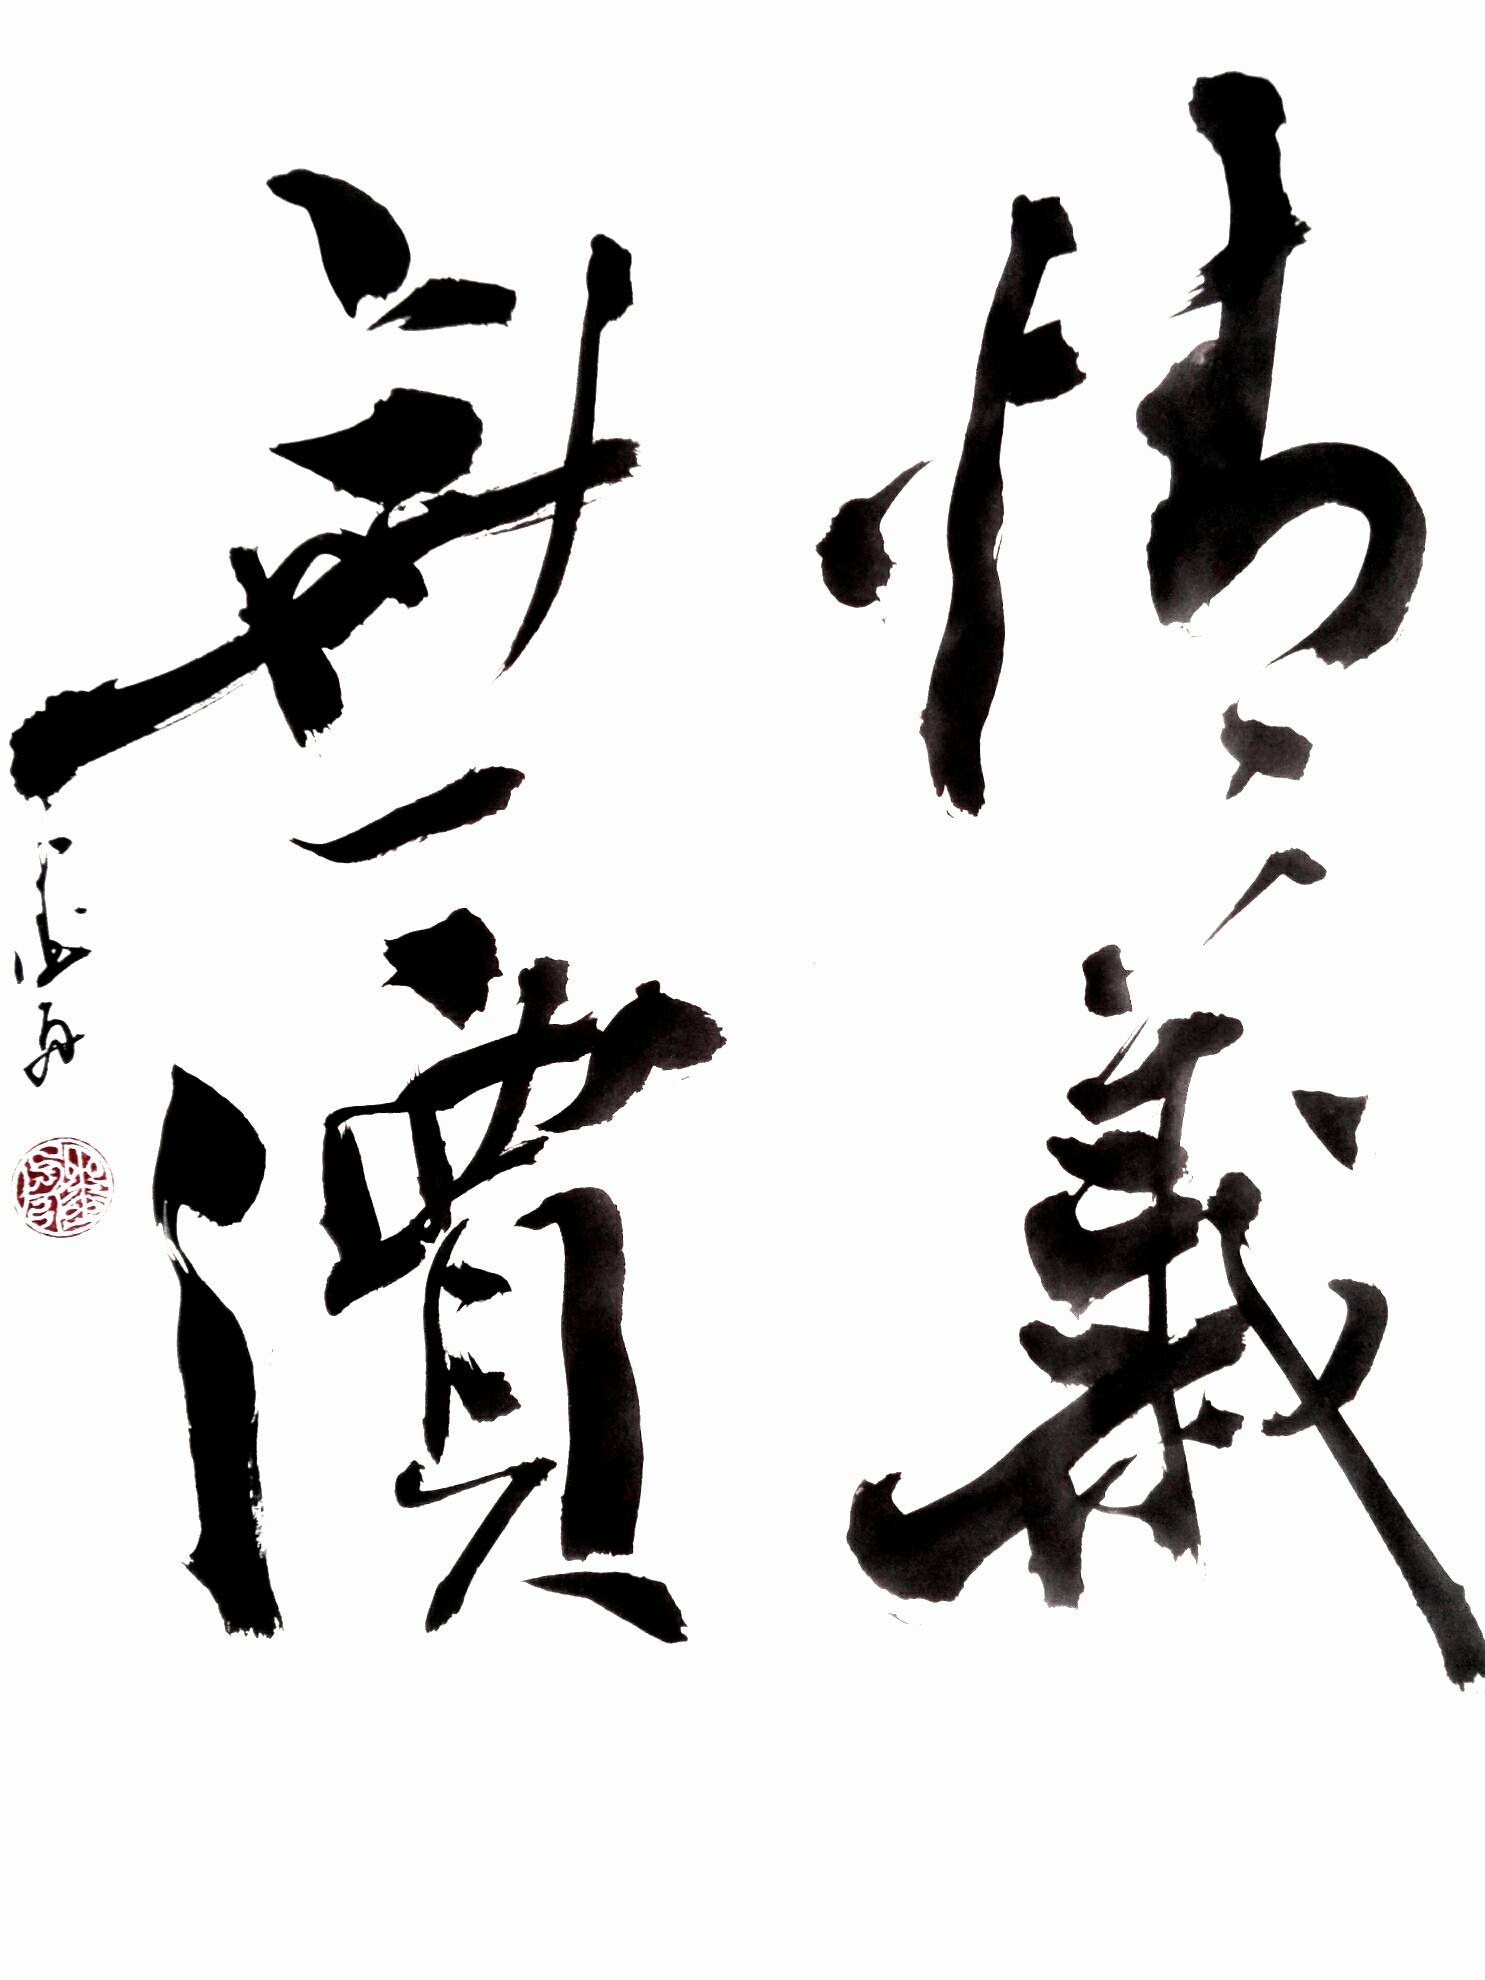 情義
無價